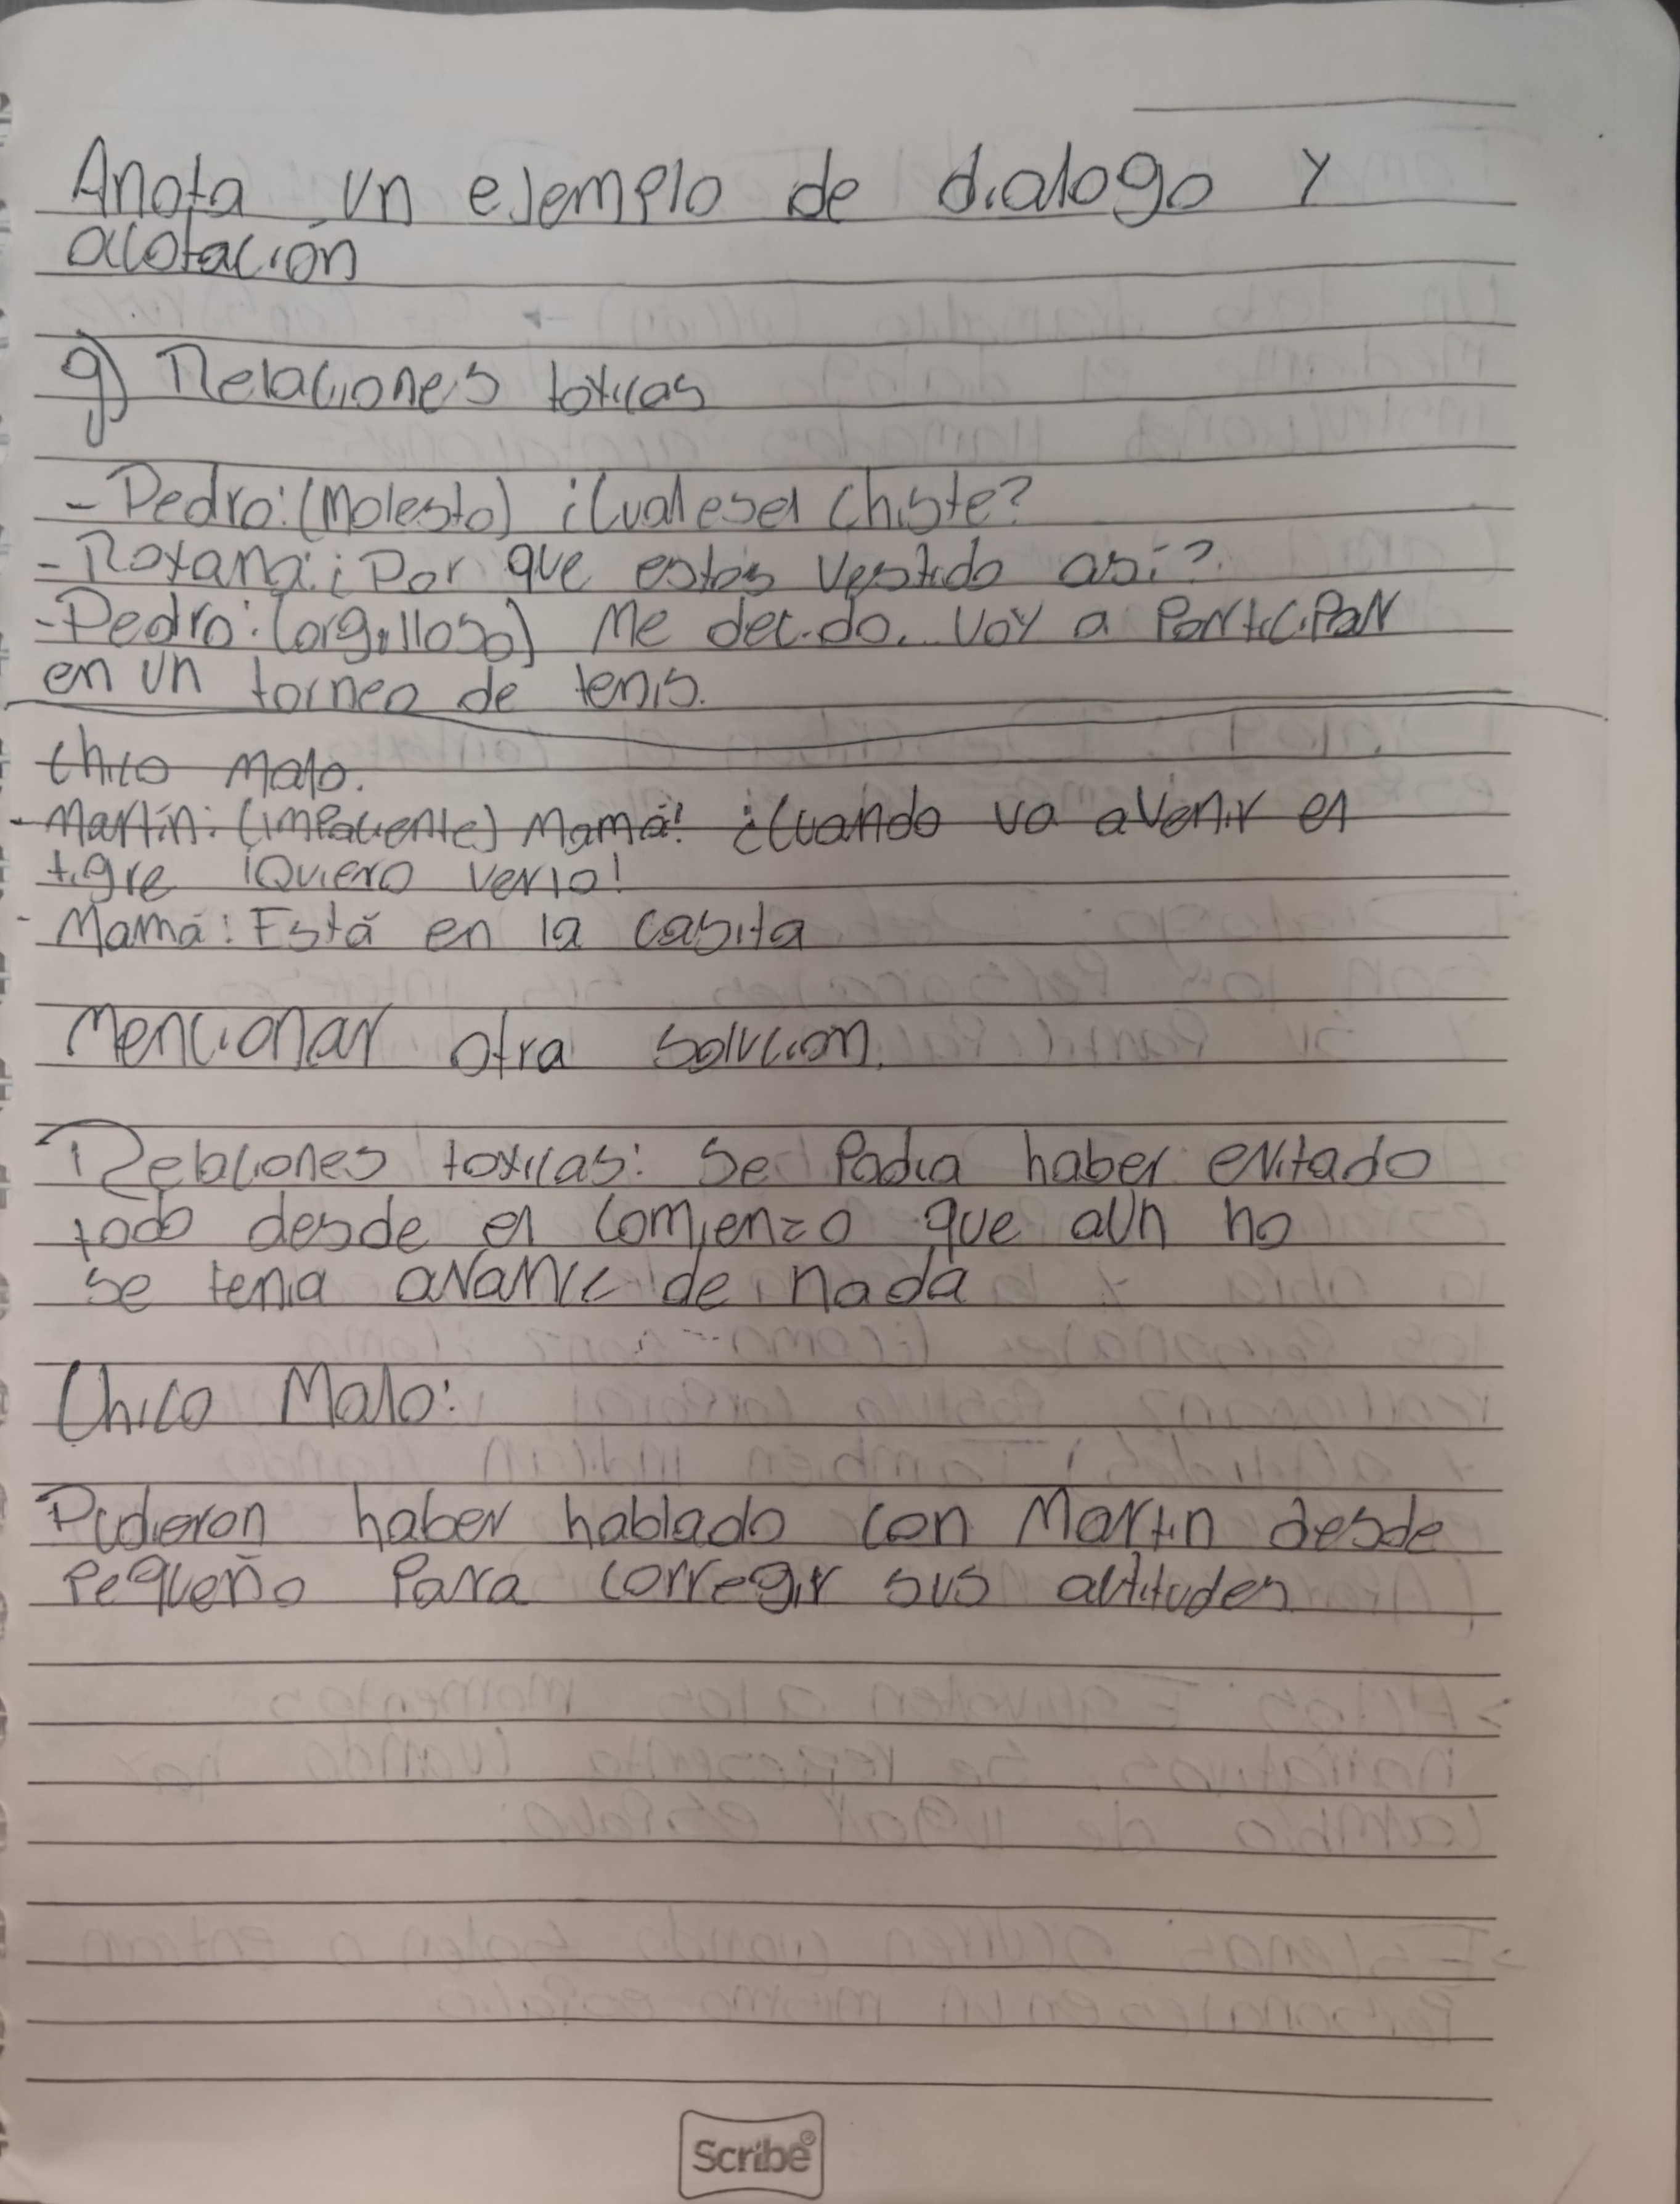 Anota un ejemplo de dialogo y
acotación
g) Relaciones toxicas
- Pedro: (Molesto) ¿Cual es el chiste?
- Roxana: ¿Por que estás vestido así?
- Pedro: (orgulloso) Me decido. Voy a Participar
en un torneo de tenis.
Chico Malo.
- Martín: (impaciente) Mamá! ¿Cuando va a venir el
tigre ¡Quiero verlo!
- Mamá: Está en la casita
Mencionar otra solucion.
Relaciones toxicas: Se Podia haber evitado
todo desde el comienzo que aun no
se tenia avance de nada
Chico Malo:
Pudieron haber hablado con Martin desde
Pequeño Para corregir sus actitudes
Scribe®